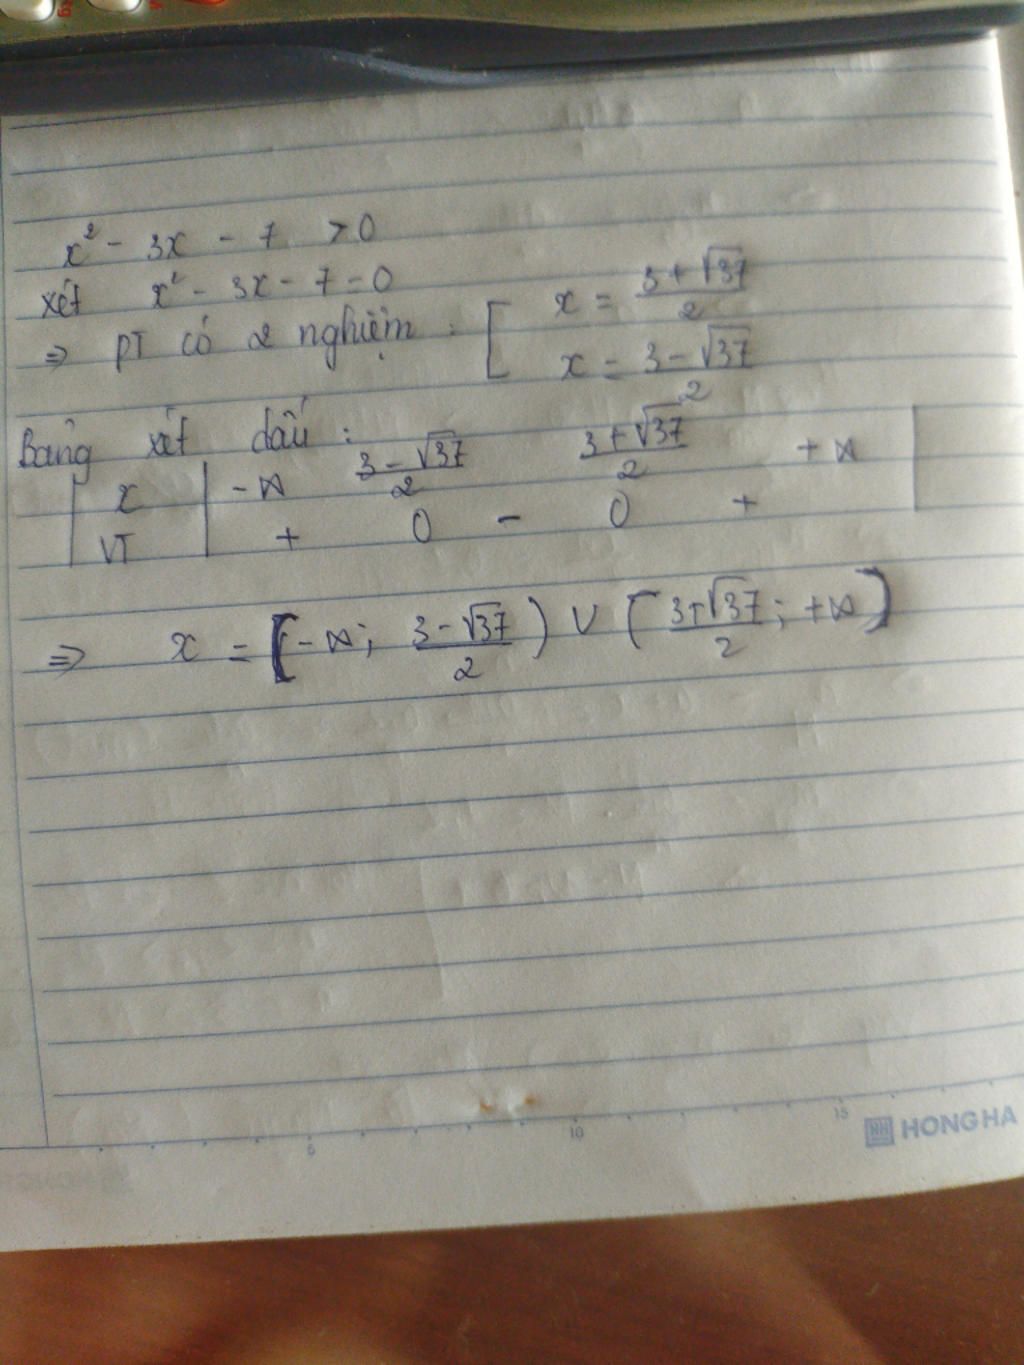 x² - 3x - 7 > 0
xét x² - 3x - 7 = 0
⇒ PT có 2 nghiệm : [ x = (3 + √37)/2
x = (3 - √37)/2
Bảng xét dấu :
x | -∞ (3 - √37)/2 (3 + √37)/2 +∞
VT | + 0 - 0 +
⇒ x = [-∞; (3 - √37)/2) ∪ ((3 + √37)/2; +∞]
5 10 15
HONG HA